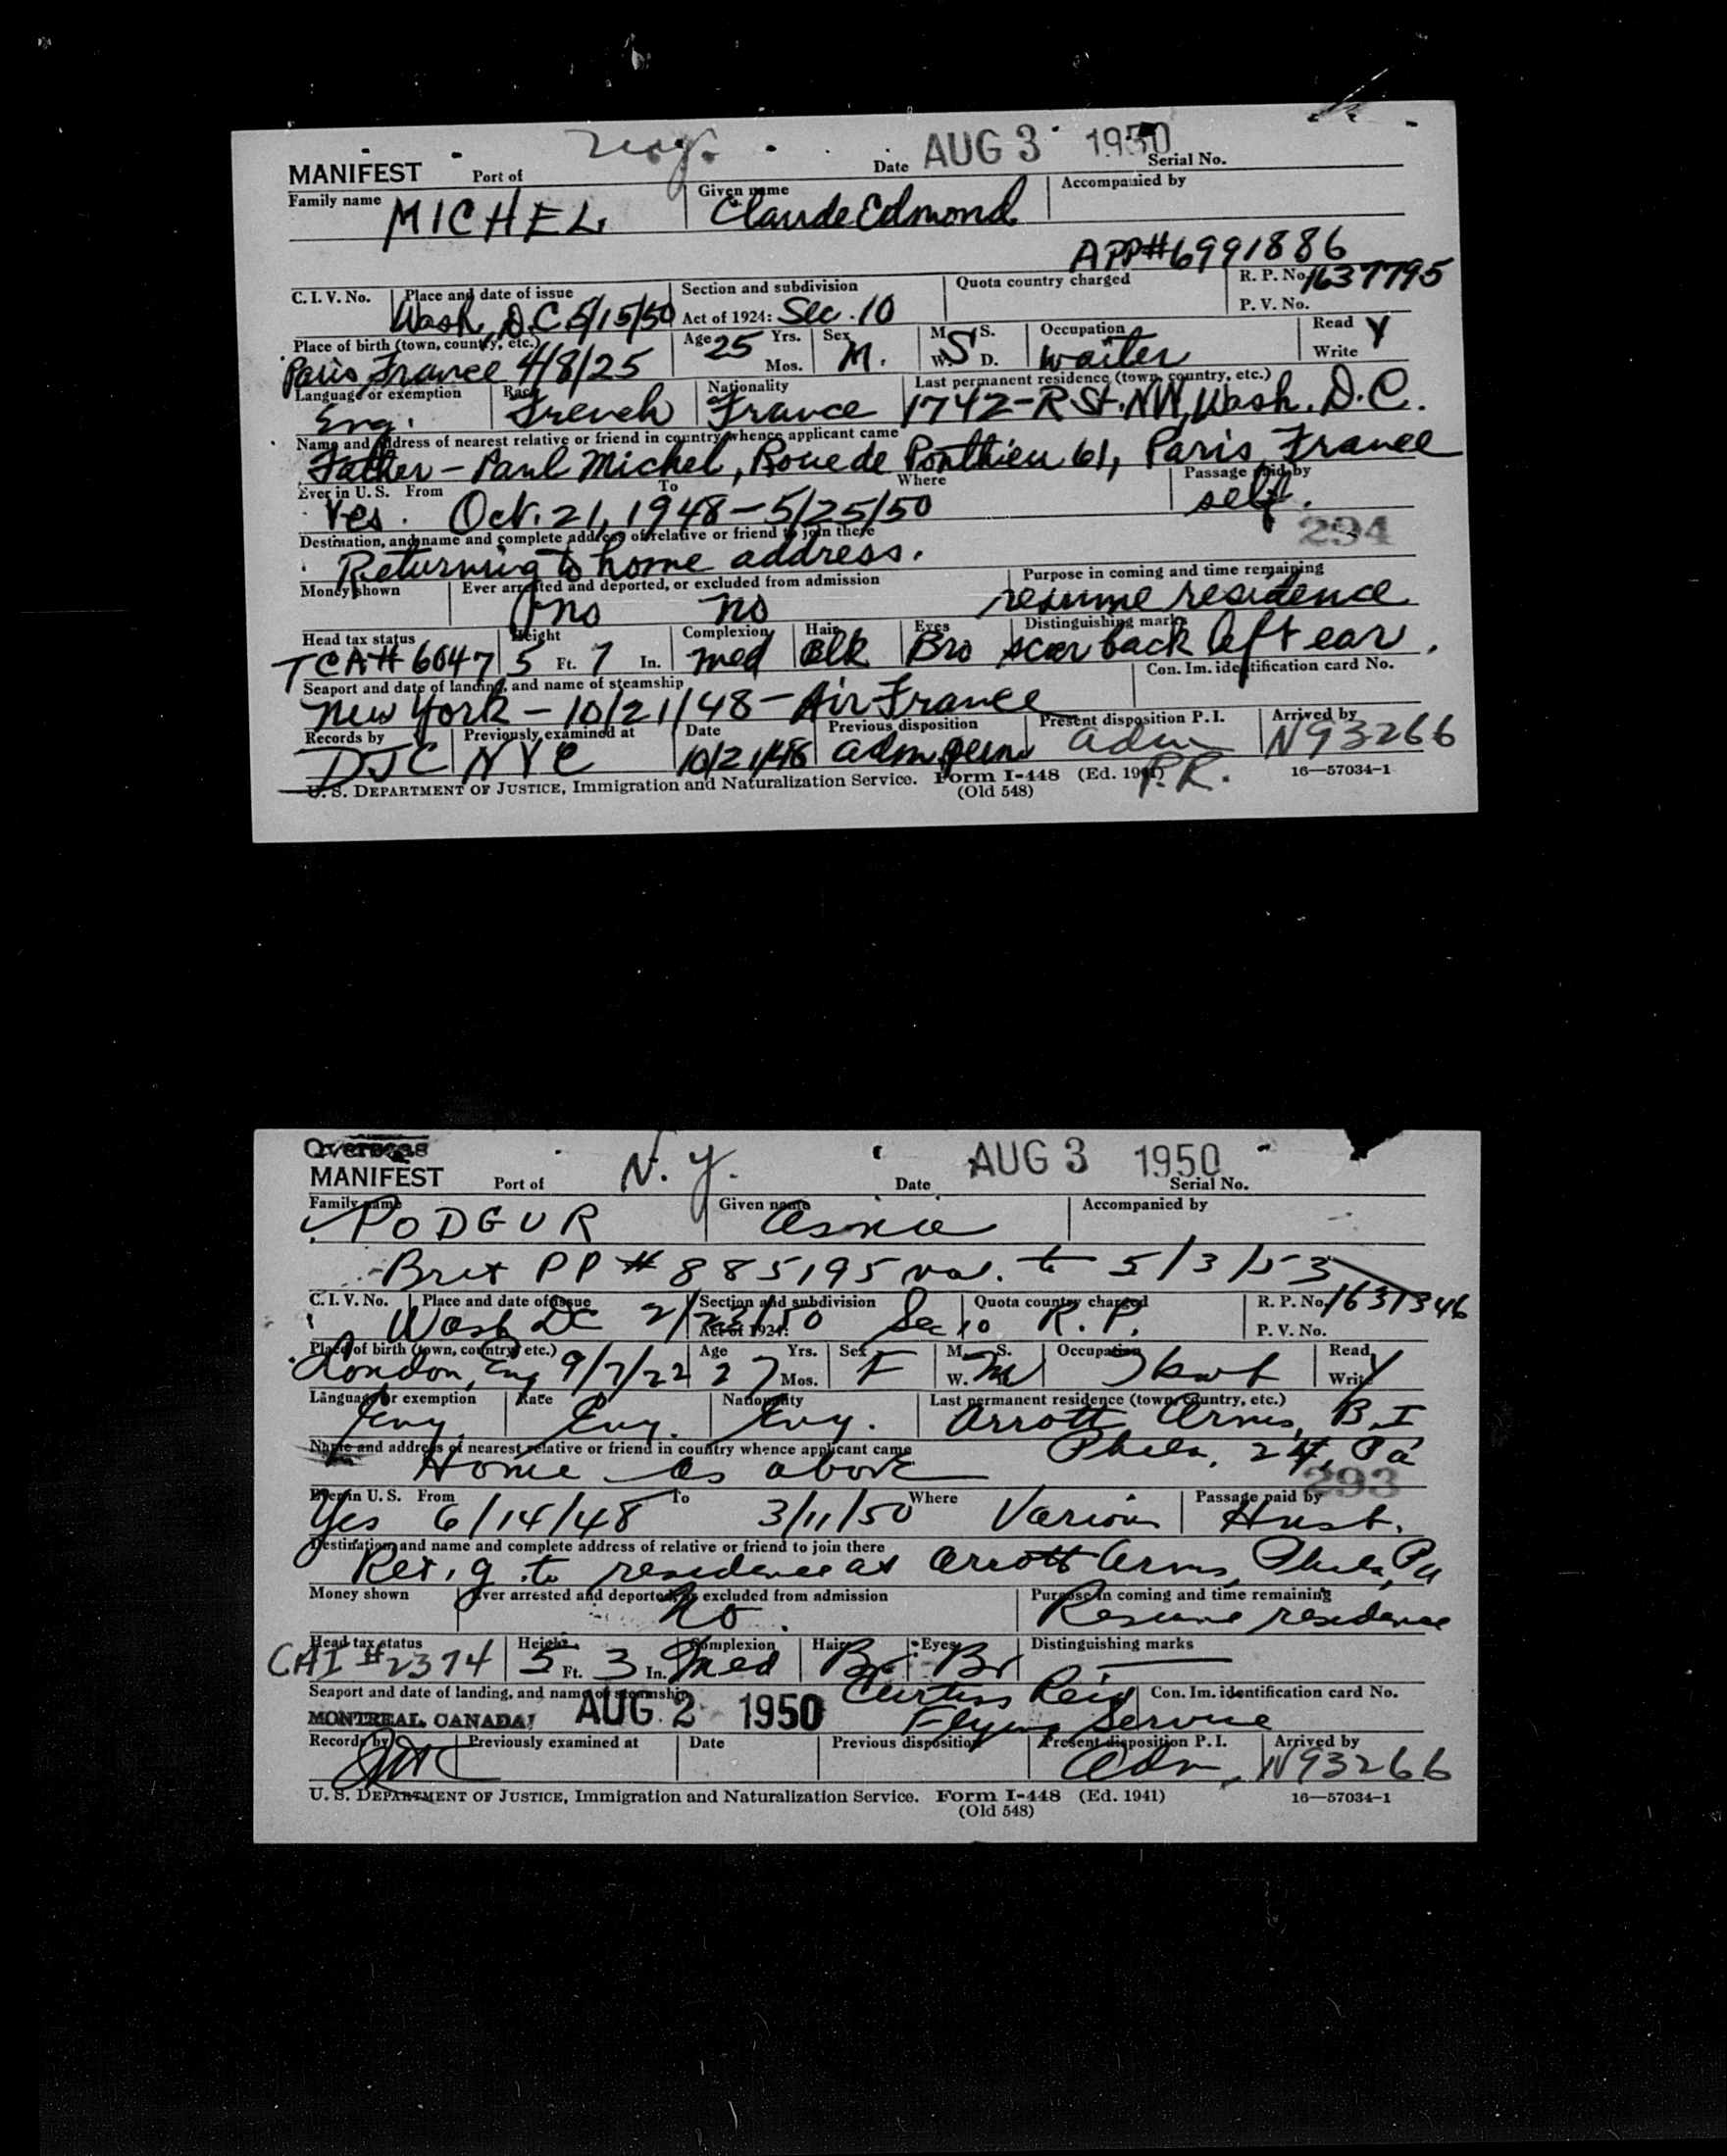 MANIFEST Port of N.Y. Date AUG 3 1950 Serial No.
Family name MICHEL Given name Claude Edmond Accompanied by
APP#6991886
C. I. V. No. Place and date of issue Wash, D.C. 5/15/50 Section and subdivision Act of 1924: Sec. 10 Quota country charged R. P. No. 1637795 P. V. No.
Place of birth (town, country, etc.) Paris France 4/8/25 Age 25 Yrs. Mos. Sex M. M. S. W. D. S Occupation waiter Read Write Y
Language or exemption Eng. Race French Nationality France Last permanent residence (town, country, etc.) 1742-R St. NW, Wash. D.C.
Name and address of nearest relative or friend in country whence applicant came
Father - Paul Michel, Roue de Ponthieu 61, Paris, France
Ever in U. S. From To Where Passage paid by
Yes. Oct. 21, 1948 - 5/25/50 self.
294
Destination, and name and complete address of relative or friend to join there
Returning to home address.
Money shown Ever arrested and deported, or excluded from admission Purpose in coming and time remaining
no no resume residence
Head tax status TCA# 6047 Height 5 Ft. 7 In. Complexion med Hair Blk Eyes Bro Distinguishing marks scar back left ear.
Seaport and date of landing, and name of steamship Con. Im. identification card No.
New York - 10/21/48 - Air France
Records by DJC Previously examined at NYC Date 10/21/48 Previous disposition adm perm Present disposition P. I. adm P.R. Arrived by N93266
U. S. DEPARTMENT OF JUSTICE, Immigration and Naturalization Service. Form I-448 (Ed. 1941) 16—57034-1
(Old 548)
Overseas
MANIFEST Port of N.Y. Date AUG 3 1950 Serial No.
Family name PODGUR Given name Accompanied by
Brit PP # 885195 val. to 5/3/53
C. I. V. No. Place and date of issue Wash DC 2/23/50 Section and subdivision Act of 1924: Sec 10 Quota country charged R.P. R. P. No. 1631346 P. V. No.
Place of birth (town, country, etc.) London, Eng 9/7/22 Age 27 Yrs. Mos. Sex F M. S. W. M Occupation Hkwf Read Write Y
Language or exemption Eng. Race Eng. Nationality Eng. Last permanent residence (town, country, etc.) Arrott Arms, B.I
Phila, 24, Pa
Name and address of nearest relative or friend in country whence applicant came
Home as above
293
Ever in U. S. From To Where Passage paid by
Yes 6/14/48 3/11/50 Various Husb.
Destination, and name and complete address of relative or friend to join there
Ret.g to residence at Arrott Arms, Phila, Pa
Money shown Ever arrested and deported, or excluded from admission Purpose in coming and time remaining
No. Resume residence
Head tax status CAI #2374 Height 5 Ft. 3 In. Complexion Med Hair Br Eyes Br Distinguishing marks
Seaport and date of landing, and name of steamship Curtiss Reid Con. Im. identification card No.
MONTREAL, CANADA AUG 2 1950 Flying Service
Records by Previously examined at Date Previous disposition Present disposition P. I. Adm, Arrived by N93266
U. S. DEPARTMENT OF JUSTICE, Immigration and Naturalization Service. Form I-448 (Ed. 1941) 16—57034-1
(Old 548)